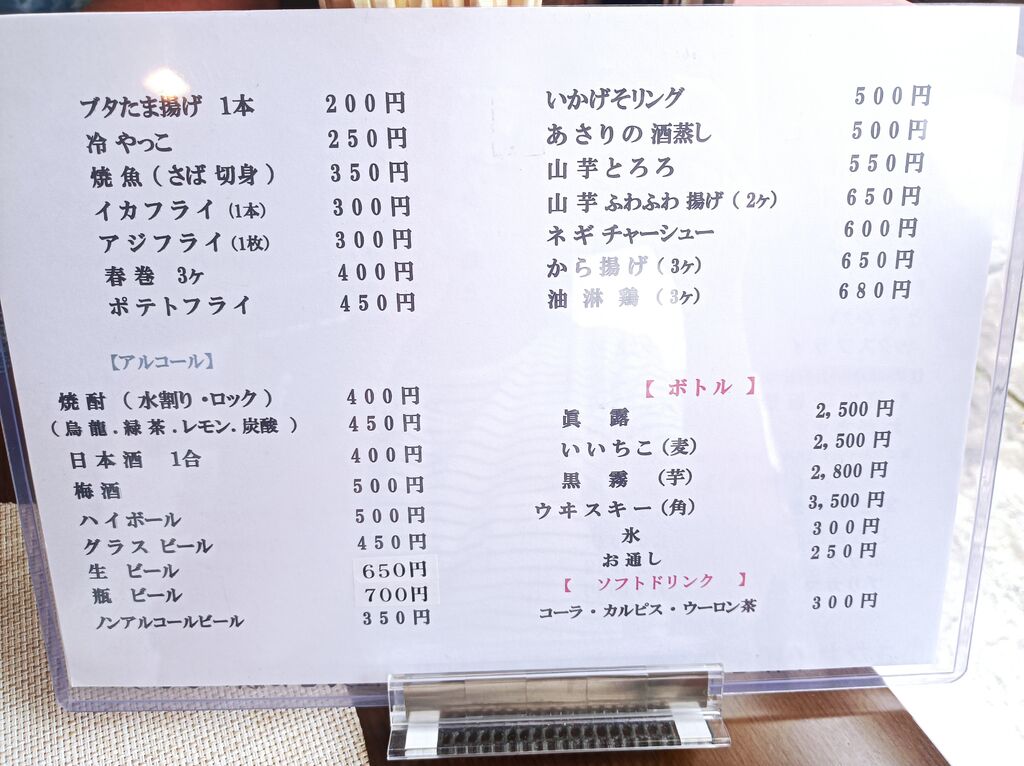 ブタたま揚げ 1本 200円
冷やっこ 250円
焼魚(さば切身) 350円
イカフライ(1本) 300円
アジフライ(1枚) 300円
春巻 3ヶ 400円
ポテトフライ 450円
【アルコール】
焼酎 (水割り・ロック) 400円
(烏龍.緑茶.レモン.炭酸) 450円
日本酒 1合 400円
梅酒 500円
ハイボール 500円
グラスビール 450円
生 ビール 650円
瓶 ビール 700円
ノンアルコールビール 350円
いかげそリング 500円
あさりの酒蒸し 500円
山芋とろろ 550円
山芋ふわふわ揚げ(2ヶ) 650円
ネギチャーシュー 600円
から揚げ(3ヶ) 650円
油淋鶏(3ヶ) 680円
【ボトル】
眞露 2,500円
いいちこ(麦) 2,500円
黒霧(芋) 2,800円
ウヰスキー(角) 3,500円
氷 300円
お通し 250円
【ソフトドリンク】
コーラ・カルピス・ウーロン茶 300円